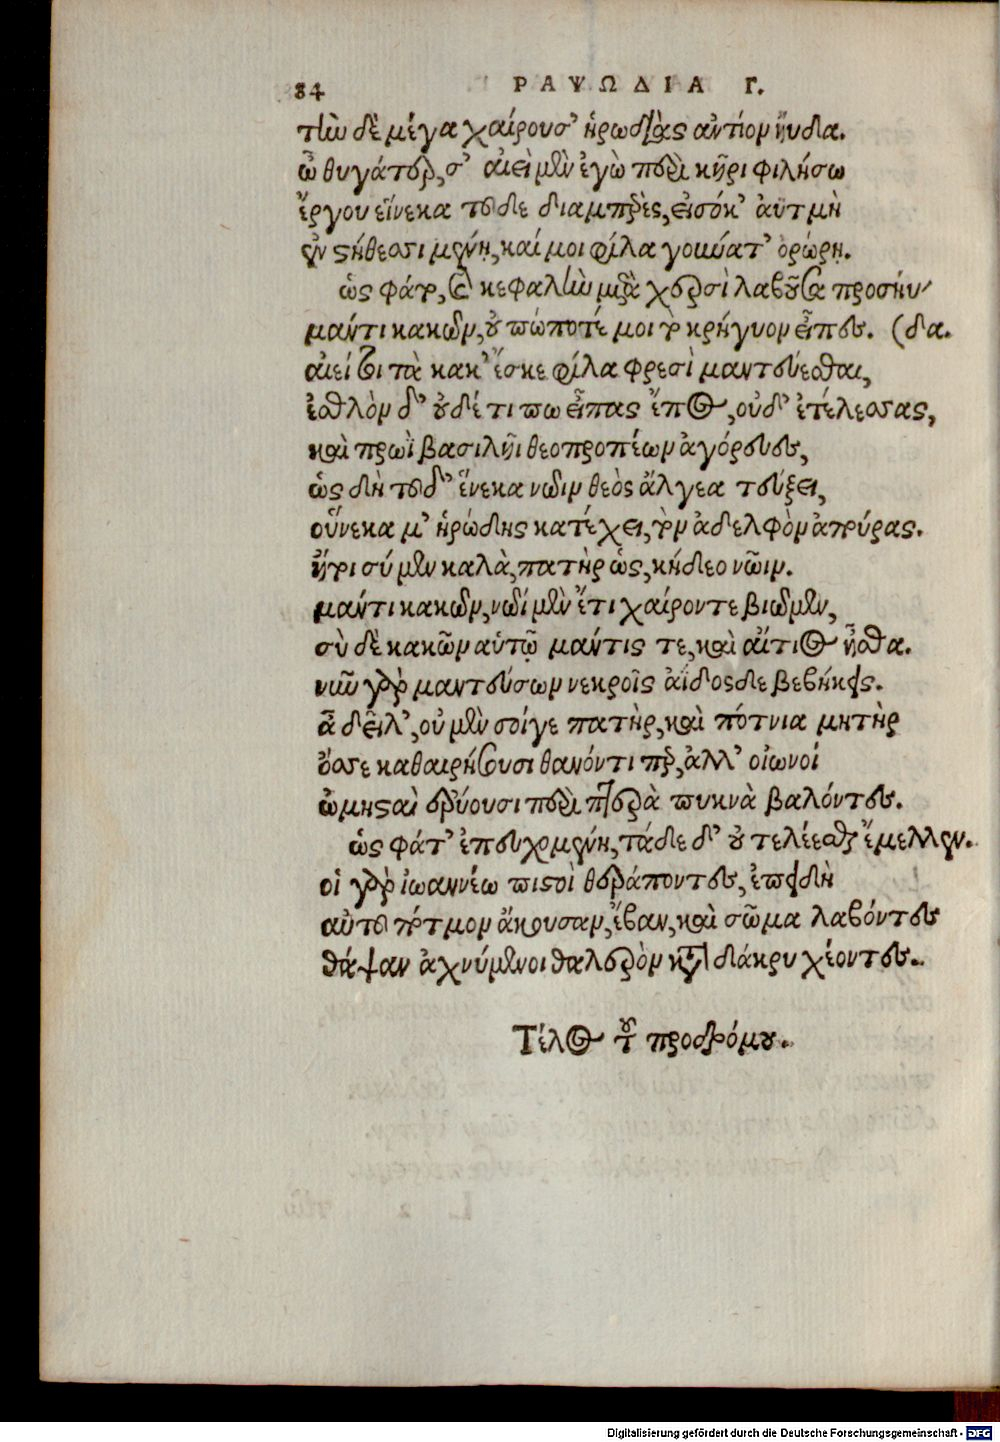 84 ΡΑΨΩΔΙΑ Γ.
τὴν δὲ μέγα χαίρουσ' ἡρωδιὰς ἀντίον ηὔδα.
ὦ θυγάτερ, σ' αἰεὶ μὲν ἐγὼ περὶ κῆρι φιλήσω
ἔργου εἵνεκα τοῦδε διαμπερὲς, εἰσόκ' ἀϋτμὴ
ἐν στήθεσσι μένῃ, καί μοι φίλα γούνατ' ὀρώρῃ.
ὡς φάτο, ἡ κεφαλὴν μετὰ χερσὶ λαβοῦσα προσηύ
μάντι κακῶν, οὐ πώποτέ μοι τὸ κρήγυον εἶπες. (δα.
αἰεί σοι τὰ κακ' ἔσκε φίλα φρεσὶ μαντεύεσθαι,
ἐσθλὸν δ' οὐδέ τι πω εἶπας ἔπος, οὐδ' ἐτέλεσσας,
καὶ πρωῒ βασιλῆϊ θεοπροπέων ἀγόρευες,
ὡς δὴ τοῦδ' ἕνεκα νῶϊν θεὸς ἄλγεα τεύξει,
οὕνεκα μ' ἡρώδης κατέχει, τὸν ἀδελφὸν ἀπούρας.
ἦτοι σύ μὲν καλὰ, πατὴρ ὡς, κήδεο νῶϊν.
μάντι κακῶν, νῶϊ μὲν ἔτι χαίροντε βιῶμεν,
σὺ δὲ κακῶν αὑτῷ μάντις τε, καὶ αἴτιος ἦσθα.
νῦν γὰρ μαντεύσων νεκροῖς ἄϊδοσδε βεβήκεις.
ἆ δεῖλ', οὐ μὲν σοίγε πατὴρ, καὶ πότνια μητὴρ
ὄσσε καθαιρήσουσι θανόντι περ, ἀλλ' οἰωνοί
ὠμησταὶ ἐρύουσι περὶ πτερὰ πυκνὰ βαλόντες.
ὡς φάτ' ἐπευχομένη, τάδε δ' οὐ τελέεσθαι ἔμελλεν.
οἱ γὰρ ἰωαννέω πιστοὶ θεράποντες, ἐπειδὴ
αὐτοῦ πότμον ἄκουσαν, ἔβαν, καὶ σῶμα λαβόντες
θάψαν ἀχνύμενοι θαλερὸν κατὰ δάκρυ χέοντες.
Τέλος τοῦ προδρόμου.
Digitalisierung gefördert durch die Deutsche Forschungsgemeinschaft - DFG